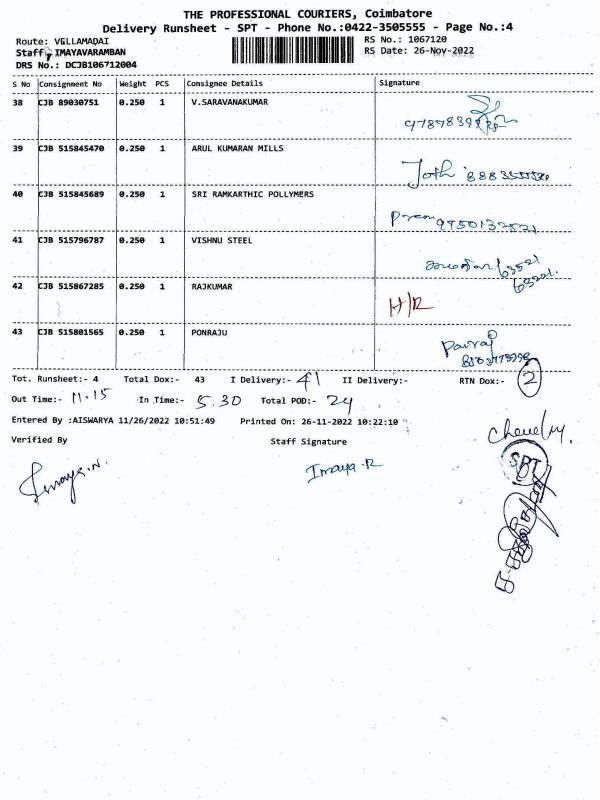 THE PROFESSIONAL COURIERS, Coimbatore
Delivery Runsheet - SPT - Phone No.:0422-3505555 - Page No.:4
Route: VELLAMADAI RS No.: 1067120
Staff: IMAYAVARAMBAN RS Date: 26-Nov-2022
DRS No.: DCJB106712004
S No Consignment No Weight PCS Consignee Details Signature
38 CJB 89030751 0.250 1 V.SARAVANAKUMAR
39 CJB 515845470 0.250 1 ARUL KUMARAN MILLS Joth
40 CJB 515845689 0.250 1 SRI RAMKARTHIC POLLYMERS Prem
41 CJB 515796787 0.250 1 VISHNU STEEL 63521
63201.
42 CJB 515867285 0.250 1 RAJKUMAR H/R
43 CJB 515801565 0.250 1 PONRAJU
Tot. Runsheet:- 4 Total Dox:- 43 I Delivery:- 41 II Delivery:- RTN Dox:- 2
Out Time:- 11.15 In Time:- 5.30 Total POD:- 24
Entered By :AISWARYA 11/26/2022 10:51:49 Printed On: 26-11-2022 10:22:10
Verified By Staff Signature
Imaya.R
SPT